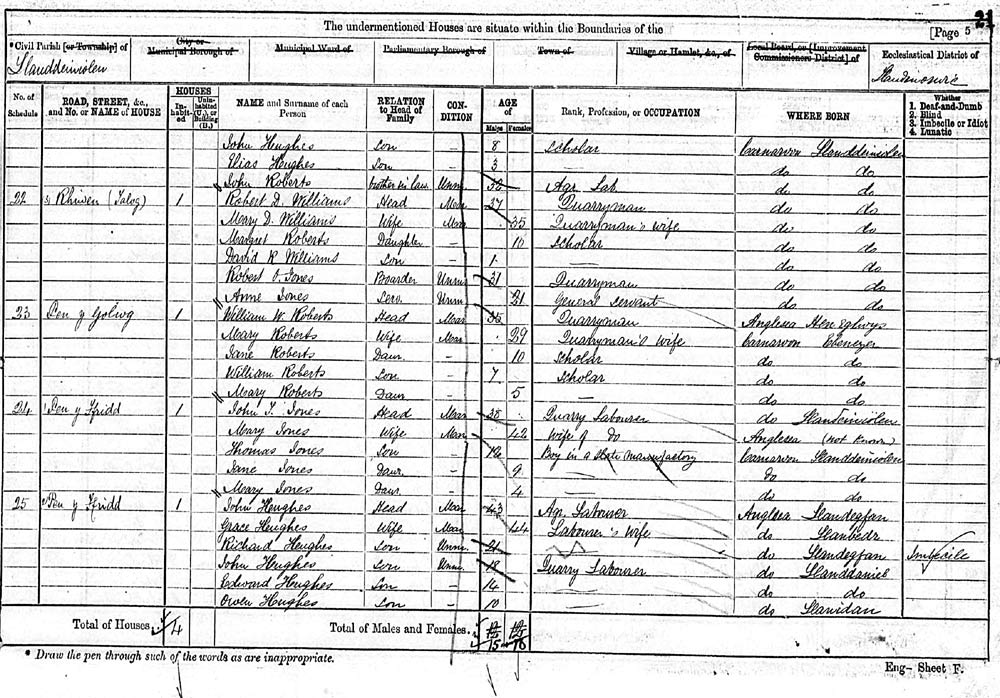 21
The undermentioned Houses are situate within the Boundaries of the
[Page 5
Civil Parish [or Township] of
City or Municipal Borough of
Municipal Ward of
Parliamentary Borough of
Town of
Village or Hamlet, &c., of
Local Board, or [Improvement Commissioners District] of
Ecclesiastical District of
Llanddeiniolen
No. of Schedule
ROAD, STREET, &c., and No. or NAME of HOUSE
HOUSES
Inhabited
Uninhabited (U.), or Building (B.)
NAME and Surname of each Person
RELATION to Head of Family
CONDITION
AGE of
Males
Females
Rank, Profession, or OCCUPATION
WHERE BORN
Whether
1. Deaf-and-Dumb
2. Blind
3. Imbecile or Idiot
4. Lunatic
John Hughes Son — 8 Scholar Carnarvon Llanddeiniolen
Elias Hughes Son — 3 — do do
John Roberts brother in law Unm. Agr. Lab do do
22 Rhiwen (Talog) 1 Robert D. Williams Head Mar 37 Quarryman do do
Mary D. Williams Wife Mar 35 Quarryman's wife do do
Margret Roberts Daughter — 10 Scholar do do
David R Williams Son — 1 — do do
Robert O. Jones Boarder Unm 31 Quarryman do do
Anne Jones Serv. Unm 21 General Servant do do
23 Pen y Golwg 1 William W. Roberts Head Mar 35 Quarryman Anglesea Hen Eglwys
Mary Roberts Wife Mar 29 Quarryman's Wife Carnarvon Ebenezer
Jane Roberts Daur. — 10 Scholar do do
William Roberts Son — 7 Scholar do do
Mary Roberts Daur — 5 — do do
24 Pen y Ffridd 1 John T. Jones Head Mar 38 Quarry Labourer do Llandeiniolen
Mary Jones Wife Mar 42 Wife of Do Anglesea (not known)
Thomas Jones Son — 12 Boy in a slate manufactory Carnarvon Llanddeiniolen
Jane Jones Daur. — 9 — do do
Mary Jones Daur — 4 — do do
25 Pen y Ffridd 1 John Hughes Head Mar 43 Agr. Labourer Anglsea Llandegfan
Grace Hughes Wife Mar 44 Labourer's Wife do Llanbedr
Richard Hughes Son Unm. 21 do Llandegfan Imbecile
John Hughes Son Unm. 18 Quarry Labourer do Llanddaniel
Edward Hughes Son — 14 — do do
Owen Hughes Son — 10 — do Llanidan
Total of Houses 4
Total of Males and Females 15 16
* Draw the pen through such of the words as are inappropriate.
Eng- Sheet F.